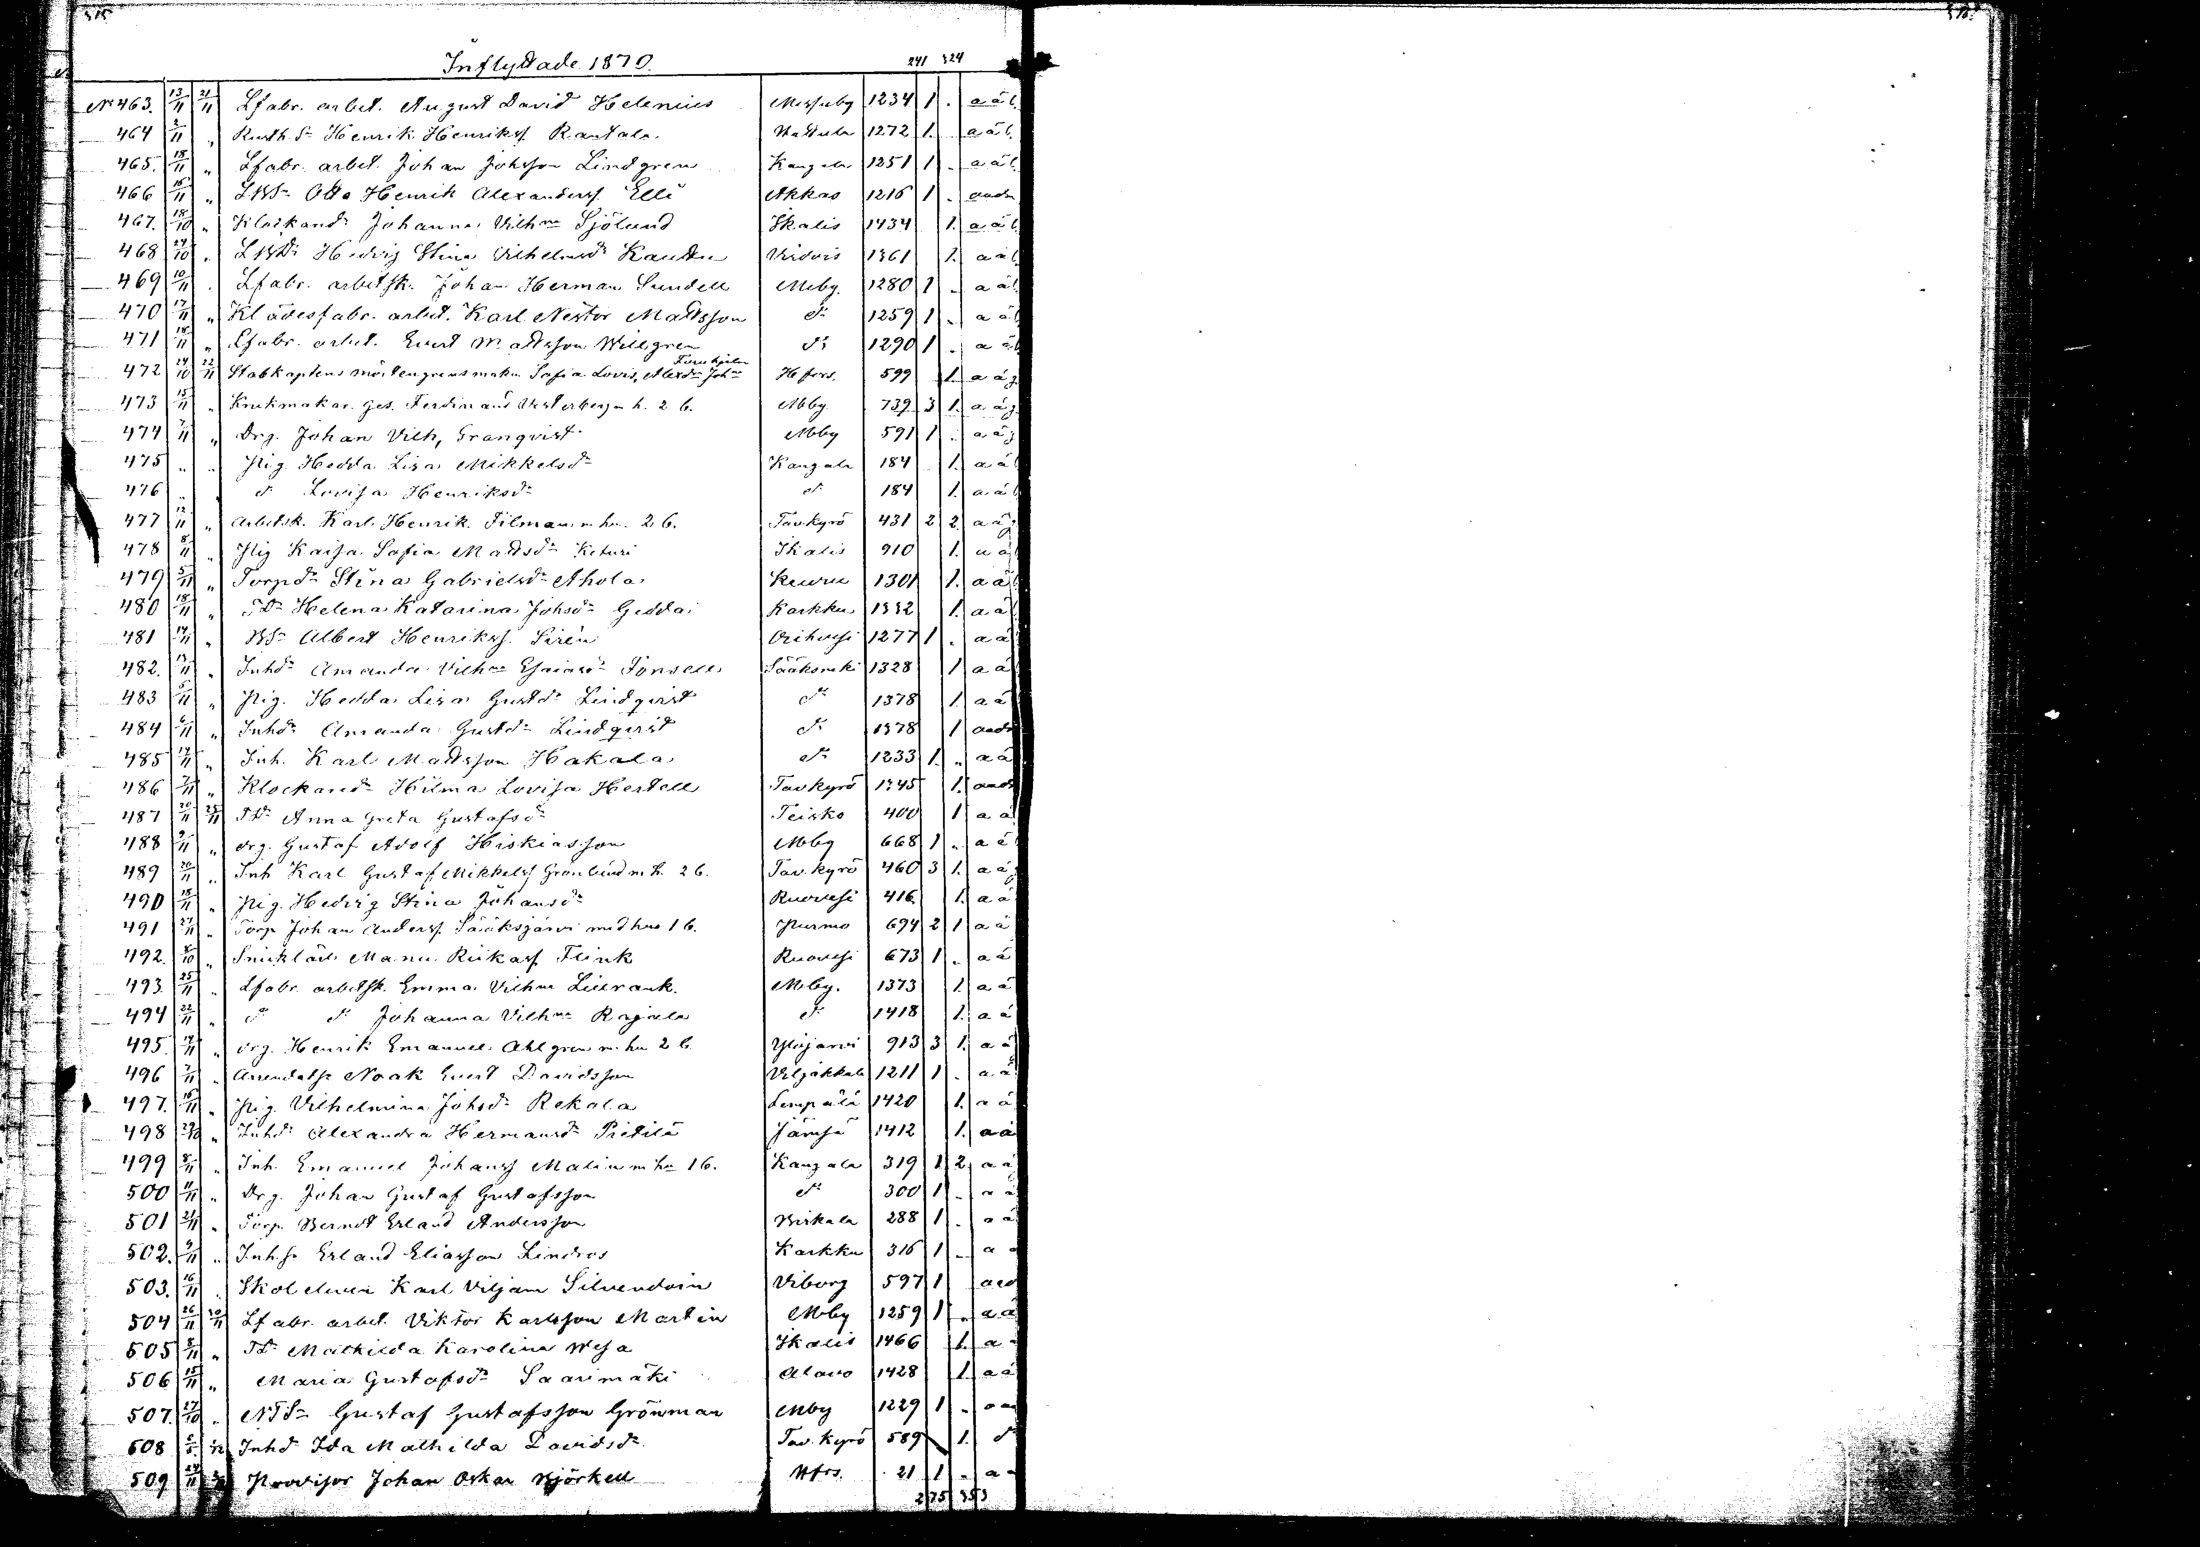 315
Inflyttade 1870.
241 324
No 463. 13/11 21/11 Lfabr. arbet. August David Helenius Messuby 1234 1 . a ä l.
464 2/11 " Rusth. Sn Henrik Henrikss. Rantala Hattula 1272 1. a ä l.
465. 18/11 " Lfabr. arbet. Johan Johsson Lindgren Kangala 1251 1 . a ä l.
466 16/11 " Otto Henrik Alexanderss. Elli Akkas 1216 1 .
467. 18/10 " Klockaredr Johanna Vilhna Sjölund Ikalis 1434 1. a ä l
468 24/10 " Hedvig Stina Vilhelmsdr Virdois 1361 1. a ä l
469 10/11 . Lfabr. arbetsk. Johan Herman Sundell Meby. 1280 1 . a ä l
470 17/11 " Klädesfabr. arbet. Karl Nestor Mattsson do 1259 1 . a ä l
471 18/11 " Lfabr. arbet. Evert Mattsson Willgren do 1290 1 . a ä l
472 24/10 22/11 Stabkaptens Sofia Lovis. Alexdra Johna Hfors. 599 1. a ä g
473 15/11 " Krukmakar. ges. Ferdinand Westerberg m h. 2 b. Mby 739 3 1. a ä g
474 7/11 " Drg. Johan Vilh. Granqvist Mby 591 1 . a ä g
475 " " Pig. Hedda Lisa Mikkelsdr Kangala 184 1. a ä l
476 " do Lovisa Henriksdr do 184 1. a ä l
477 12/11 " Arbetsk. Karl Henrik Filman m hu. 2 b. Tavkyrö 431 2 2 a ä g
478 8/11 " Pig Kaisa Sofia Mattsdr Keturi Ikalis 910 1. a ä
479 5/11 " Torpdr Stina Gabrielsdr Ahola Keuru 1301 1. a ä l
480 18/11 " TDr Helena Katarina Johsdr Gedda Karkku 1332 1. a ä l
481 14/11 " BSn Albert Henrikss. Sirén Orihvesi 1277 1 . a ä
482. 13/11 " Inhdr Amanda Vilhna Esaiasdr Fonsell Sääksmäki 1328 1 a ä
483 5/11 " Pig. Hedda Lisa Gustdr Lindqvist do 1378 1. a ä
484 6/11 " Inhdr Amanda Gustdr Lindqvist do 1378 1
485 17/11 " Inh. Karl Mattsson Hakala do 1233 1. " a ä
486 7/11 " Klockaredr Hilma Lovisa Hertell Tavkyrö 1345 1.
487 20/11 25/11 TDr Anna Greta Gustafsdr Teisko 400 1 a ä
488 9/11 " drg. Gustaf Adolf Hiskiasson Mby 668 1 . a ä l
489 20/11 " Inh Karl Gustaf Mikkelss Grönlund m h. 2 b. Tav.kyrö 460 3 1. a ä g
490 18/11 " Pig. Hedvig Stina Johansdr Ruovesi 416 1. a ä
491 27/11 " Torp. Johan Anderss. Sääksjärvi med hu 1 b. Purmo 694 2 1 a ä
492. 8/10 " Snicklärl. Manu Riikass. Flink Ruovesi 673 1 . a ä
493. 25/11 " Lfabr. arbetsk. Emma Vilhna Mby. 1373 1. a ä
494 22/11 " do do Johanna Vilhna Rajala do 1418 1. a ä
495. 19/11 " drg. Henrik Emanuel Ahlgren m. hu 2 b. Ylöjärvi 913 3 1. a ä
496 7/11 " Noak Evert Davidsson Viljakkala 1211 1 . a ä
497. 16/11 " Pig. Vilhelmina Johsdr Rekola Lempälä 1420 1. a ä
498 29/10 " Inhdr Alexandra Hermansdr Pietilä Jämsä 1412 1. a ä
499 8/11 " Inh. Emanuel Johanss Malin m hu 1 b. Kangala 319 1 2 a ä
500 11/11 " Drg. Johan Gustaf Gustafsson do 300 1 . a ä
501 21/11 " Torp. Berndt Erland Andersson Birkala 288 1 . a ä
502. 9/11 " Erland Eliasson Lindros Karkku 316 1 . a
503. 16/11 . Skolelven Karl Viljam Silvendoin Viborg 597 1
504 26/11 30/11 Lfabr. arbet. Viktor Karlsson Martin Mby 1259 1 . a ä
505 8/11 " TDr Mathilda Karolina Wesa Ikalis 1466 1. a
506 15/11 " Maria Gustafsdr Saarimäki Alavo 1428 1. a ä
507. 27/10 " Gustaf Gustafsson Grönman Mby 1229 1 .
508 Inhdr Ida Mathilda Davidsdr Tav. Kyrö 589 1. do
509 24/11 Provisor Johan Oskar Björkell Hfrs. 21 1 . a
275 353